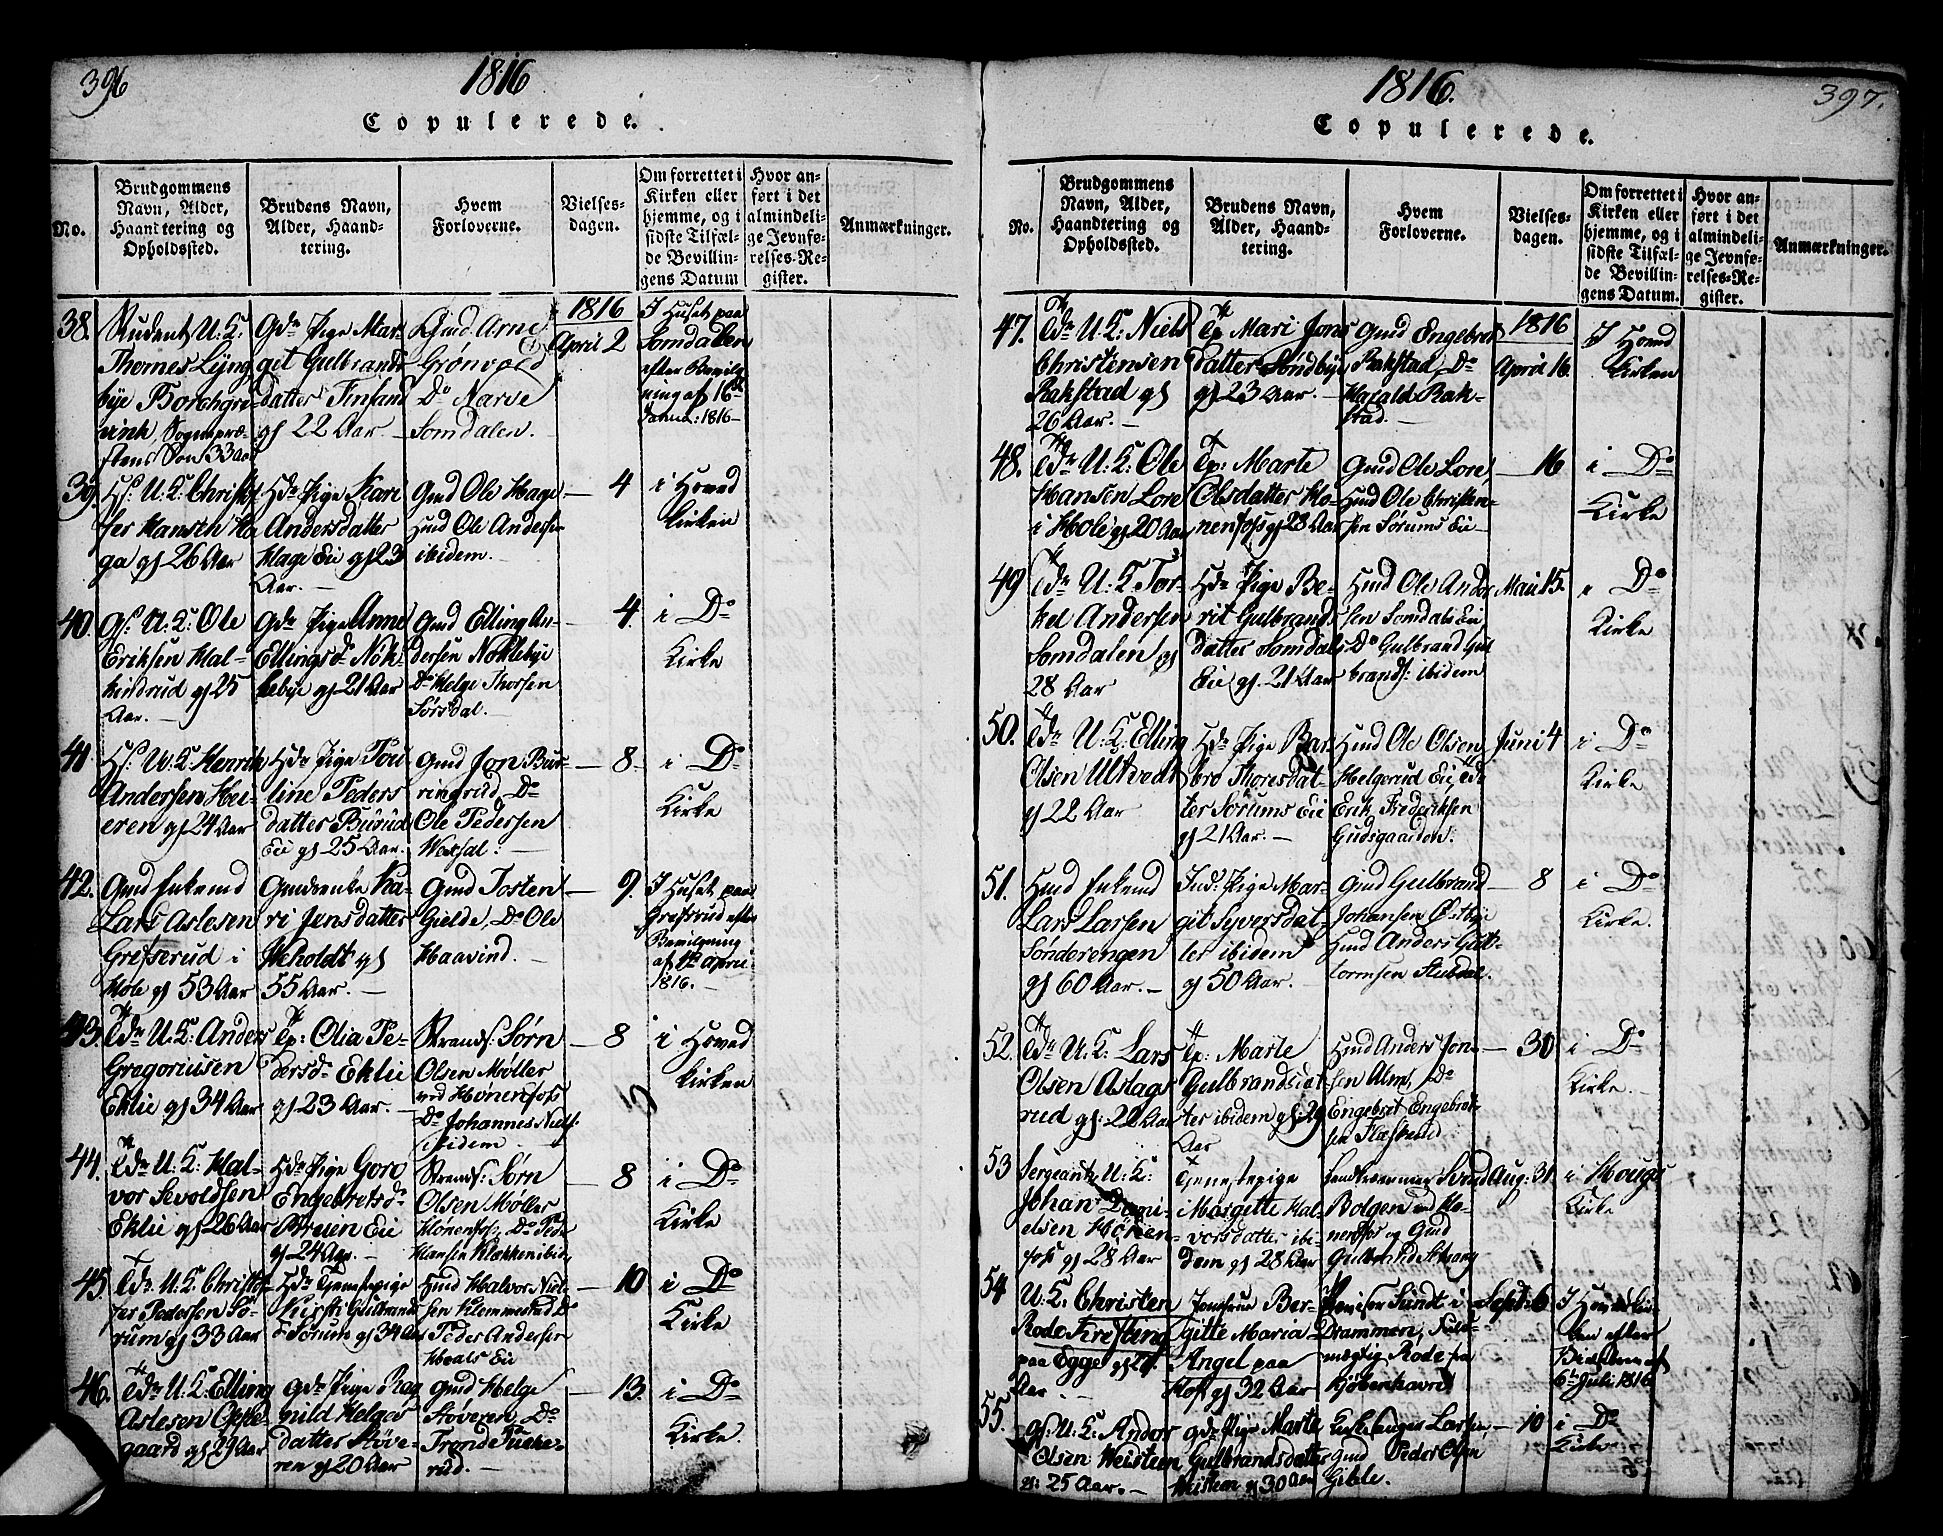 396
1816
Copulerede.
No.
Brudgommens Navn, Alder, Haandtering og Opholdssted.
Brudens Navn, Alder, Haandtering.
Hvem Forloverne.
Vielsesdagen.
Om forrettet i Kirken eller hjemme, og i sidste Tilfælde Bevillingens Datum
Hvor anført i det almindelige Jevnførelses-Register.
Anmærkninger.
38.
Student U. K.
Thomes Lyng
bye Borchgre
vink, Sognepræ-
stens Søn 33 Aar
Gdr Pige Mar
git Gulbrands
datter Finsand
gl 22 Aar.
Gmd. Arne
Grønvold
Do Narve
Somdalen.
1816
April 2
I Huset paa
Somdalen
efter Bevilg
ning af 16de
Janua: 1816
39.
Hs. U. K. Christof
fer Hansen Ha
ga gl 26 Aar
Hdr Pige Kari
Andersdatter
Hage Eie gl 23
Aar.
Gmd Ole Hage
Hmd Ole Anderse
ibidem.
4
i Hoved
kirken
40.
Gs. U. K: Ole
Eriksen Hal-
kinrud gl 25
Aar.
Gdr Pige Anne
Ellingsdr Nøk
lebye gl 21 Aar
Gmd Elling An-
dersen Nøklebye
Do Helge Thorsen
Sørsdal.
4
i Do
Kirke
41
Hs. U. K Henrik
Andersen Hei-
eren gl 24 Aar
Hdr Pige Tou
line Peders
datter Burud
Eie gl 25 Aar.
Gmd Jon Bur-
ringrud, Do
Ole Pedersen
8.
i Do
Kirke
42.
Gmd Enkemd
Lars Aslesen
Gresserud i
Hole gl 53 Aar
Gmdsenke Ka-
ri Jensdatter
Weholdt gl
55 Aar.
Gmd Tosten
Gielde, Do Ole
Haavind.
9.
I Huset paa
Gresrud efter
Bevilgning
af 1te April
1816.
43.
Tdr U. K: Anders
Gregoriusen
Eklie gl 34 Aar
Tp: Olia Pe-
dersdr Eklie
gl 23 Aar.
Strands: Sørn
Olsen Møller
ved Hønenfoss
Do Johannes Niels:
ibidem.
8
i Hoved
kirken
44.
Tdr U. K: Hal-
vor Sevoldsen
Eklie gl 26 Aar
Hdr Pige Goro
Engebretsdr
Eie
gl 24 Aar.
Strands: Sørn
Olsen Møller
Hønenfos, Do Peder
Hansen Klækken ibid.
8
i Do
Kirke
45.
Tdr U. K. Christof
fer Pedersen Sø-
rum gl 33 Aar
Hdr Tjenestepige
Kirsti Gulbrands
dr Sørum gl 34 Aar
Hmd Halvor Niel-
sen Klemmestrud Do
Peder Andersen
Hvals Eie
10
i Do
Kirke
46.
Tdr U. K. Elling
Aslesen Oppe-
gaard gl 29 Aar
Gdr Pige Rag
nild Helges
datter Støve-
ren gl 20 Aar
Gmd Helge
Støveren, Do
Trond Finke-
rud.
13.
i Do
Kirke.
1816.
397.
Copulerede.
No.
Brudgommens Navn, Alder, Haandtering og Opholdssted.
Brudens Navn, Alder, Haandtering.
Hvem Forloverne.
Vielsesdagen.
Om forrettet i Kirken eller hjemme, og i sidste Tilfælde Bevillingens Datum.
Hvor anført i det almindelige Jevnførelses-Register.
Anmærkninger.
47.
Tdr U. K: Niels
Christensen
Rakstad gl
26 Aar.
Tp Mari Jons
datter Sondbye
gl 23 Aar.
Gmd Engebret
Rakstad, Do
Harald Rak-
stad.
1816
April 16.
I Hoved
Kirken
48.
Tdr U: K: Ole
Hansen Lore
i Hole gl 20 Aar
Tp: Marte
Olsdatter Hø-
nenfoss gl 28 Aar
Gmd Ole Lore,
Hmd Ole Christen-
sen Sørums Eie
16
i Do
Kirke
49
Tdr U. K Tor-
kel Andersen
Somdalen gl
28 Aar
Hdr Pige Be-
rit Gulbrands
datter Somdals
Eie gl. 21 Aar
Hmd Ole Ander
sen Somdals Eie
Do Gulbrand Gul
brands: ibidem
Mai 15.
i Do
Kirke
50.
Tdr U. K. Elling
Olsen Ultvedt
gl 22 Aar
Hdr Pige Bar
bro Thoresdat-
ter Sørums Eie
gl 21 Aar.
Hmd Ole Olsen
Helgerud Eie, Tdr
Erik Frederiksen
Gudsgaarden.
Juni 4
i Do
Kirke
51.
Hmd Enkemd
Lars Larsen
Sønderengen
gl 60 Aar.
Ind: Pige Mar-
git Syversdat-
ter ibidem
gl 50 Aar.
Gmd Gulbrand
Johansen Østbye
Hmd Anders Gut-
tormsen Stubdal.
8
i Do
Kirke.
52.
Tdr U. K: Lars
Olsen Aslag
rud gl. 22 Aar
Tp: Marte
Gulbrandsdat
ter ibidem gl: 29
Aar
Hmd Anders Jon-
sen Alme, Do
Engebret Engebret-
sen Flæskerud
30
i Do
Kirke.
53
Sergeant U. K:
Johan Dani-
elsen Hønen-
foss gl 28 Aar
Tjenestepige
Margitte Hal-
vorsdatter ibi-
dem gl 28 Aar
Svend
Bolgen ved Hø-
nenfos og Gmd
Aug: 31
i Hougs
Kirke
54
U. K. Christen
Rode Frisling
paa Egge gl 27.
Aar
Jomfrue Ber-
gitte Maria
Angel paa
Hof gl 32 Aar
Provisor Sundt i
Drammen, Fuld-
mægtig Rode fra
Kjøbenhavn
Sept: 6
I Hovedkir-
ken efter
Bevilling af
6te Juli 1816
55.
Gs. U. K. Anders
Olsen Weisteen
gl: 25 Aar.
Gdr Pige Marte
Gulbrandsdatter
Weisteen gl 30 Aar
Kirkesanger Larsen
Gmd Peder Olsen
Gielle.
10
i Do
Kirke